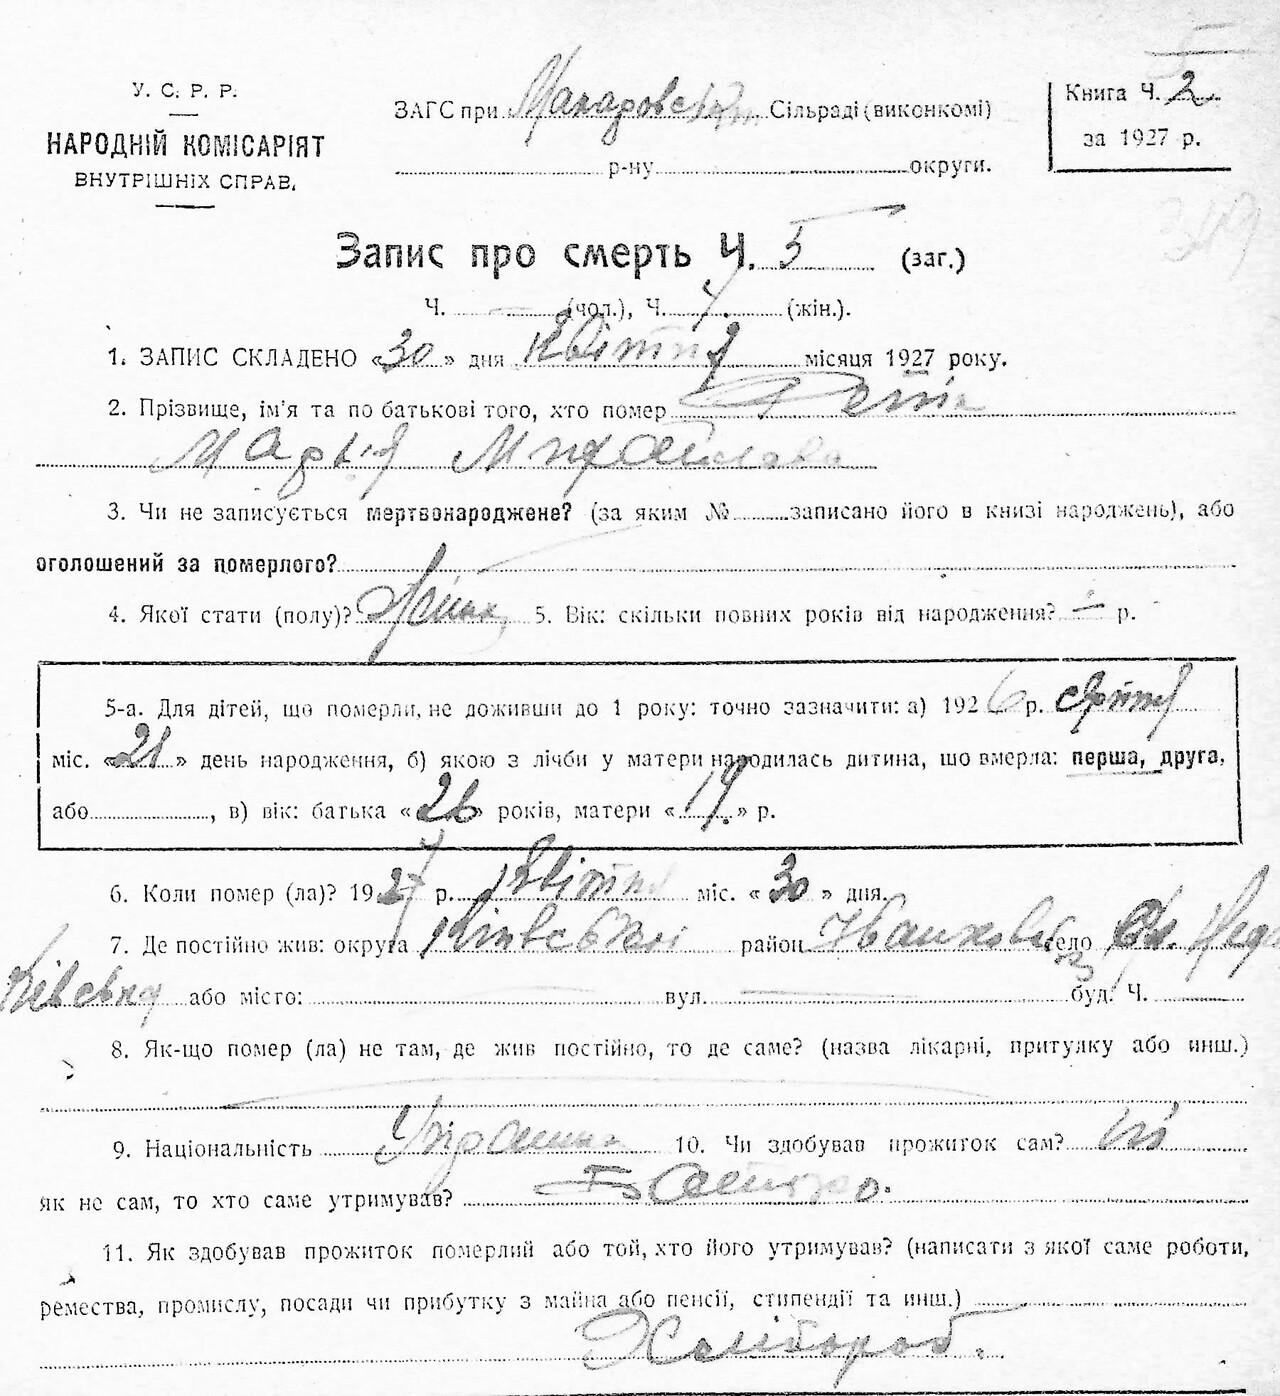 У. С. Р. Р.
НАРОДНІЙ КОМІСАРІЯТ
ВНУТРІШНІХ СПРАВ.
ЗАГС при Сільраді (виконкомі)
р-ну округи.
Книга Ч. 2
за 1927 р.
Запис про смерть Ч. 5 (заг.)
Ч. — (чол.), Ч. 4. (жін.).
1. ЗАПИС СКЛАДЕНО «30» дня Квітня місяця 1927 року.
2. Прізвище, ім'я та по батькові того, хто помер
Мар'я
3. Чи не записується мертвонароджене? (за яким № записано його в книзі народжень), або
оголошений за померлого?
4. Якої стати (полу)? 5. Вік: скільки повних років від народження? — р.
5-а. Для дітей, що померли, не доживши до 1 року: точно зазначити: а) 1926 р.
міс. «21» день народження, б) якою з лічби у матери народилась дитина, що вмерла: перша, друга,
або , в) вік: батька «26» років, матери «19.» р.
6. Коли помер (ла)? 1927 р. Квітня міс. «30» дня.
7. Де постійно жив: округа Київської район село
або місто: — вул. — буд. Ч.
8. Як-що помер (ла) не там, де жив постійно, то де саме? (назва лікарні, притулку або инш.)
9. Національність 10. Чи здобував прожиток сам? ні
як не сам, то хто саме утримував? Батько.
11. Як здобував прожиток померлий або той, хто його утримував? (написати з якої саме роботи,
ремества, промислу, посади чи прибутку з майна або пенсії, стипендії та инш.)
Хлібороб.